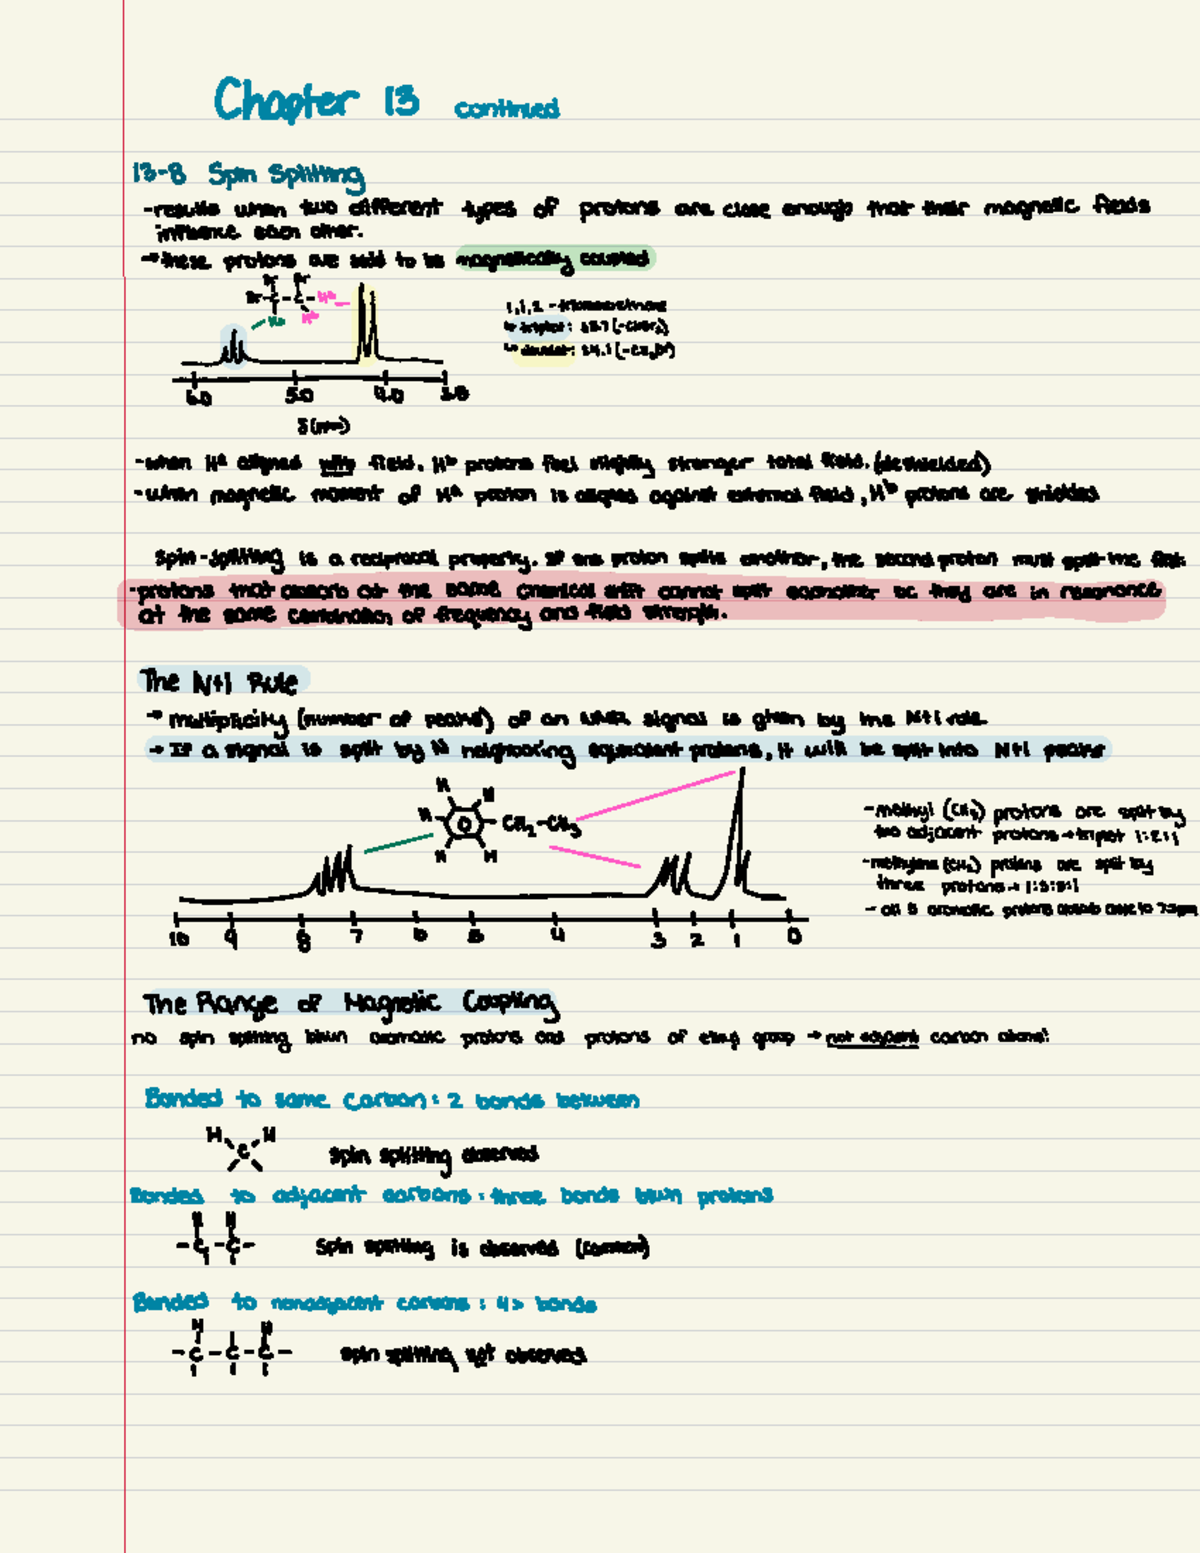 Chapter 13 continued
13-8 Spin Splitting
-results when two different types of protons are close enough that their magnetic fields
influence each other.
→these protons are said to be magnetically coupled
Br Br
Br-C-C-Hᵇ
Hᵃ Hᵇ
1,1,2-tribromoethane
↳ triplet: δ5.7 (-CHBr₂)
↳ doublet: δ4.1 (-CH₂Br)
6.0 5.0 4.0 3.0
δ (ppm)
-when Hᵃ aligned with field, Hᵇ protons feel slightly stronger total field. (deshielded)
-when magnetic moment of Hᵃ proton is aligned against external field, Hᵇ protons are shielded
Spin-splitting is a reciprocal property. If one proton splits another, the second proton must split the first.
-protons that absorb at the same chemical shift cannot split eachother bc they are in resonance
at the same combination of frequency and field strength.
The N+1 Rule
→ multiplicity (number of peaks) of an NMR signal is given by the N+1 rule
→ If a signal is split by N neighboring equivalent protons, it will be split into N+1 peaks
H
H
H CH₂-CH₃
H H
-methyl (CH₃) protons are split by
two adjacent protons→triplet 1:2:1
-methylene (CH₂) protons are split by
three protons→ 1:3:3:1
- all 5 aromatic protons absorb close to 7.2ppm
10 9 8 7 6 5 4 3 2 1 0
The Range of Magnetic Coupling
no spin splitting btwn aromatic protons and protons of ethyl group → not adjacent carbon atoms!
Bonded to same carbon: 2 bonds between
H H
C
spin splitting observed
Bonded to adjacent carbons: three bonds btwn protons
H H
-C-C-
Spin splitting is observed (common)
Bonded to nonadjacent carbons: 4> bonds
H H
-C-C-C-
spin splitting not observed